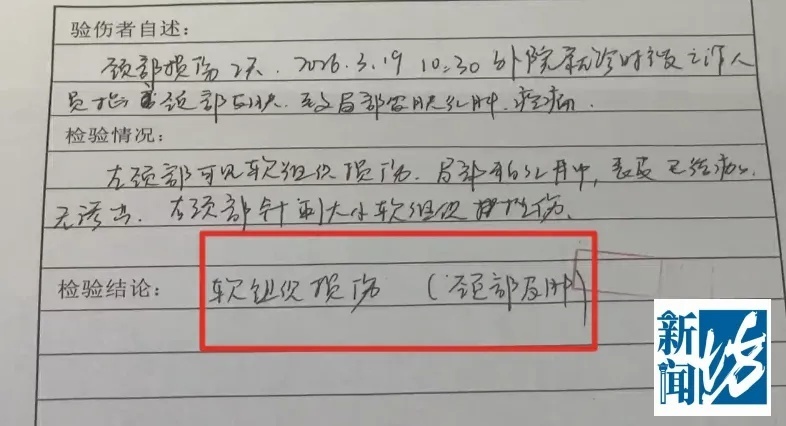 验伤者自述：
颈部损伤2天. 2026.3.19 10:30 外院就诊时被工作人
员 颈部皮肤. 致局部皮肤红肿. 疼痛.
检验情况：
左颈部可见软组织损伤. 局部 红肿, 表皮已结痂.
无渗出. 左颈部针刺大小软组织 伤.
检验结论： 软组织损伤 （颈部皮肤）
新闻坊